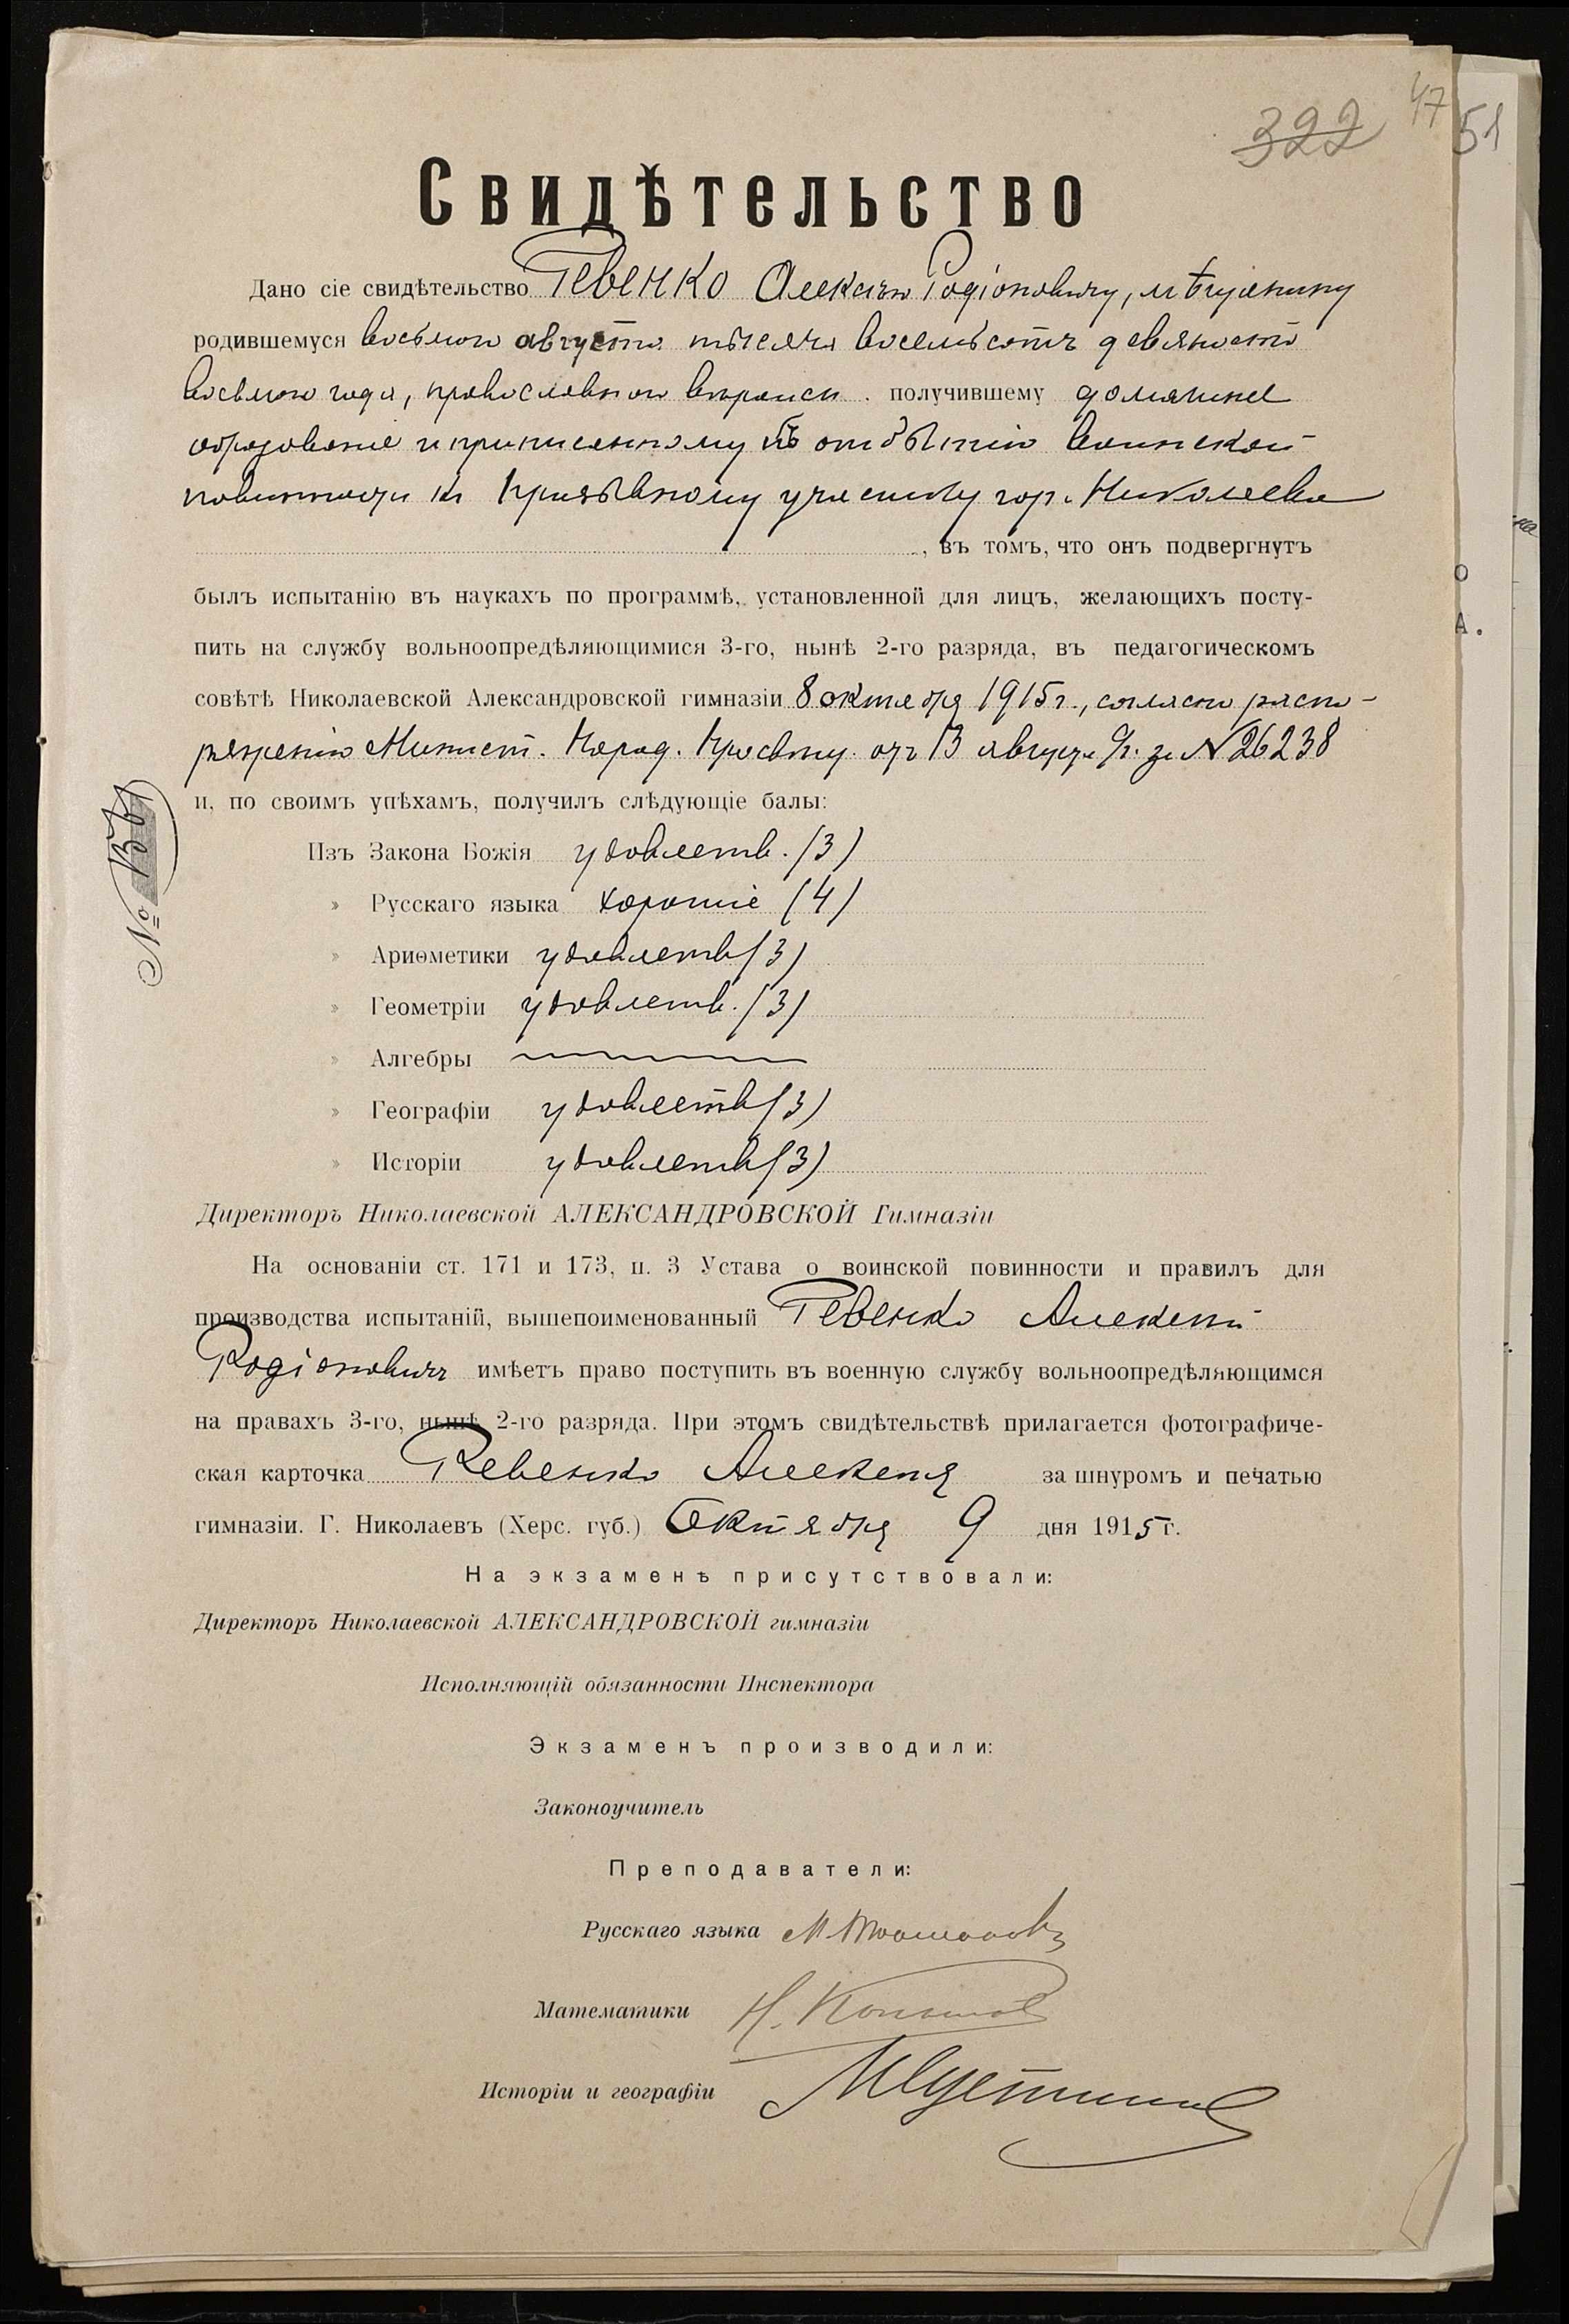 322 47 51
Свидѣтельство
Дано сіе свидѣтельство Ревенко Алексѣю Родіоновичу, мѣщанину
родившемуся восьмого августа тысяча восемьсотъ девяносто
восьмого года, православного вѣроисп. получившему домашнее
образованіе и приписанному къ отбытію воинской
повинности къ призывному участку гор. Николаева
, въ томъ, что онъ подвергнутъ
былъ испытанію въ наукахъ по программѣ, установленной для лицъ, желающихъ посту-
пить на службу вольноопредѣляющимися 3-го, нынѣ 2-го разряда, въ педагогическомъ
совѣтѣ Николаевской Александровской гимназіи 8 октября 1915 г., согласно распо-
ряженію Минист. Народ. Просвѣщ. отъ 13 августа с/г. за № 26238
и, по своимъ упѣхамъ, получилъ слѣдующіе балы:
№
Изъ Закона Божія удовлетв. (3)
» Русскаго языка хорошіе (4)
» Ариѳметики удовлетв (3)
» Геометріи удовлетв. (3)
» Алгебры
» Географіи удовлетв (3)
» Исторіи удовлетв (3)
Директоръ Николаевской АЛЕКСАНДРОВСКОЙ Гимназіи
На основаніи ст. 171 и 173, п. 3 Устава о воинской повинности и правилъ для
производства испытаній, вышепоименованный Ревенко Алексѣй
Родіоновичъ имѣетъ право поступить въ военную службу вольноопредѣляющимся
на правахъ 3-го, нынѣ 2-го разряда. При этомъ свидѣтельствѣ прилагается фотографиче-
ская карточка Ревенко Алексѣя за шнуромъ и печатью
гимназіи. Г. Николаевъ (Херс. губ.) Октября 9 дня 1915 г.
На экзаменѣ присутствовали:
Директоръ Николаевской АЛЕКСАНДРОВСКОЙ гимназіи
Исполняющій обязанности Инспектора
Экзаменъ производили:
Законоучитель
Преподаватели:
Русскаго языка
Математики
Исторіи и географіи